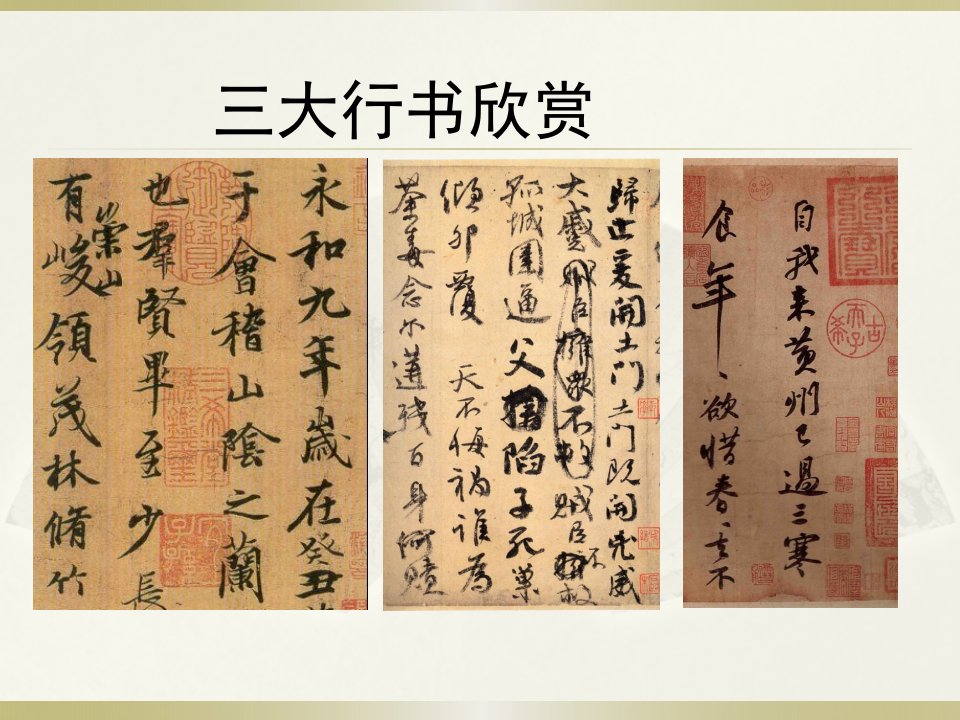 三大行书欣赏
永和九年歲在癸丑
于會稽山陰之蘭
也羣賢畢至少長
有崇山峻領茂林脩竹
歸止爰開土門土門既開兇威
大蹙賊臣擁衆不救賊臣不救
孤城圍逼父陷子死巢
傾卵覆天不悔禍誰為
荼毒念尔遘殘百身何贖
自我来黃州已過三寒
食年、欲惜春、去不